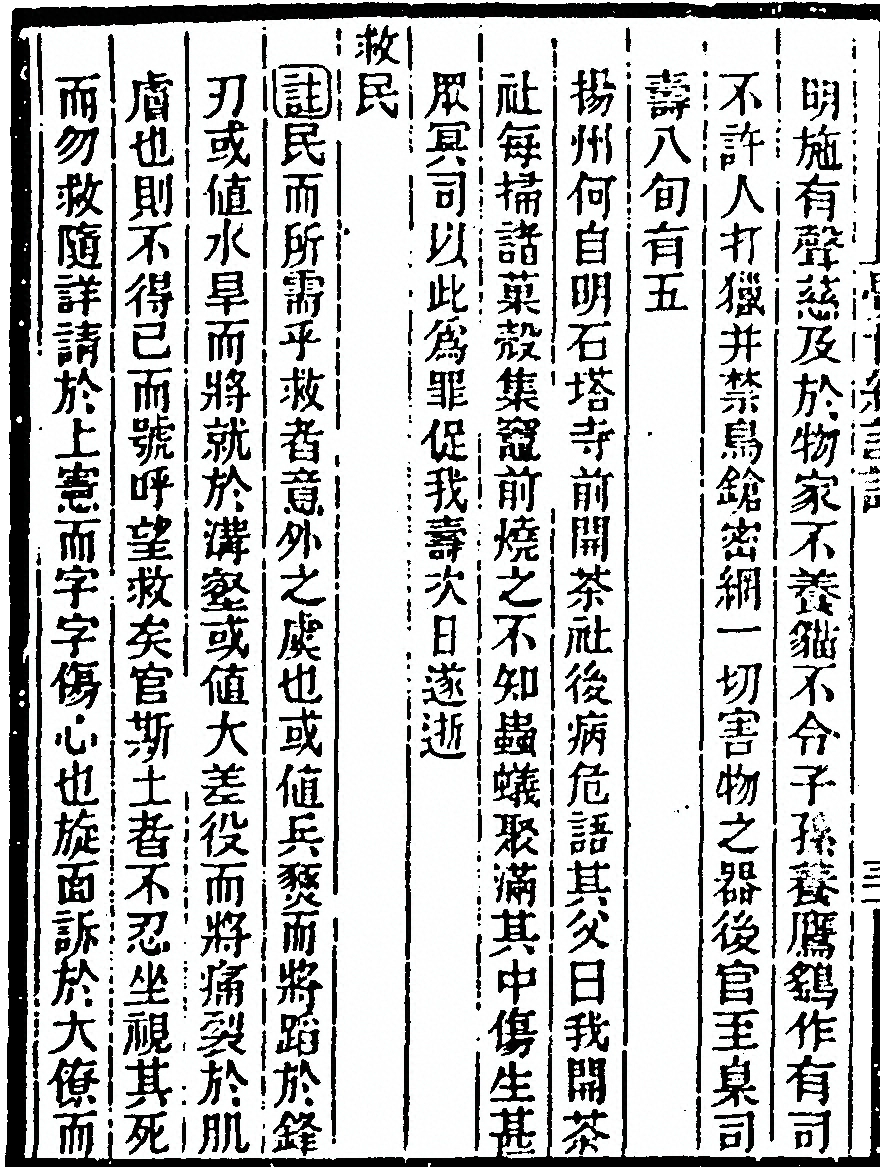 明施有聲慈及於物家不養貓不令子孫養鷹鷂作有司
不許人打獵并禁鳥鎗密網一切害物之器後官至臬司
壽八旬有五
揚州何自明石塔寺前開茶社後病危語其父曰我開茶
社每掃諸菓殼集竈前燒之不知蟲蟻聚滿其中傷生甚
眾冥司以此為罪促我壽次日遂逝
救民
註民而所需乎救者意外之虞也或值兵燹而將蹈於鋒
刃或值水旱而將就於溝壑或值大差役而將痛裂於肌
膚也則不得已而號呼望救矣官斯土者不忍坐視其死
而勿救隨詳請於上憲而字字傷心也旋面訴於大僚而